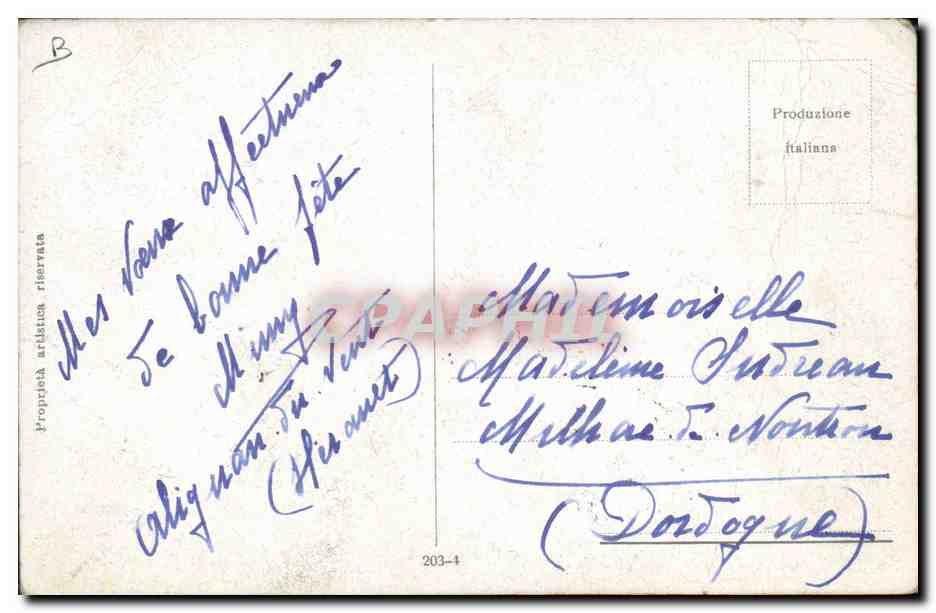 B
Proprietà artistica riservata
Mes vœux affectueux
de bonne fête
Mimy
Alignan du Vent
(Hérault)
203-4
Produzione
italiana
CPARAMA
Mademoiselle
Madeleine Sudreau
Milhac de Nontron
(Dordogne)